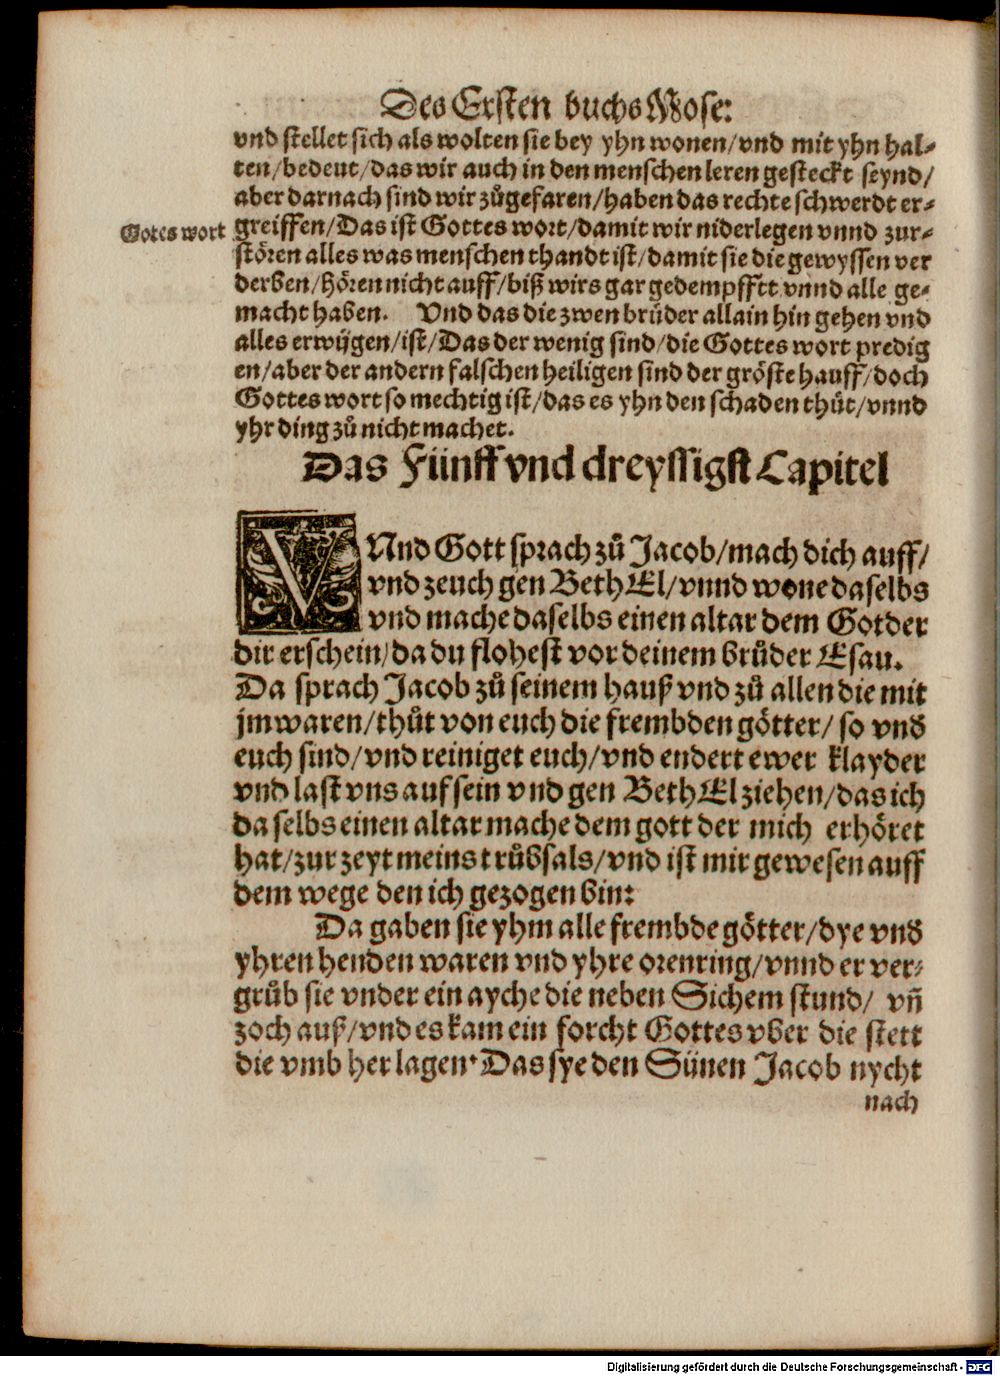 Des Ersten buchs Mose:
vnd stellet sich als wolten sie bey yhn wonen/vnd mit yhn hal-
ten/bedeut/das wir auch in den menschen leren gesteckt seynd/
aber darnach sind wir zůgefaren/haben das rechte schwerdt er-
Gotes wort
greiffen/Das ist Gottes wort/damit wir niderlegen vnnd zur-
stören alles was menschen thandt ist/damit sie die gewyssen ver
derben/hören nicht auff/biß wirs gar gedempfftt vnnd alle ge-
macht haben. Vnd das die zwen brüder allain hin gehen vnd
alles erwijgen/ist/Das der wenig sind/die Gottes wort predig
en/aber der andern falschen heiligen sind der gröste hauff/doch
Gottes wort so mechtig ist/das es yhn den schaden thůt/vnnd
yhr ding zů nicht machet.
Das Fünff vnd dreyssigst Capitel
VNnd Gott sprach zů Jacob/mach dich auff/
vnd zeuch gen BethEl/vnnd wone daselbs
vnd mache daselbs einen altar dem Got der
dir erschein/da du flohest vor deinem brůder Esau.
Da sprach Jacob zů seinem hauß vnd zů allen die mit
jm waren/thůt von euch die frembden götter/ so vnd
euch sind/vnd reiniget euch/vnd endert ewer klayder
vnd last vns auf sein vnd gen BethEl ziehen/das ich
da selbs einen altar mache dem gott der mich erhöret
hat/zur zeyt meins trůbsals/vnd ist mir gewesen auff
dem wege den ich gezogen bin:
Da gaben sie yhm alle frembde götter/dye vnd
yhren henden waren vnd yhre orenring/vnnd er ver-
grůb sie vnder ein ayche die neben Sichem stund/ vñ
zoch auß/vnd es kam ein forcht Gottes vber die stett
die vmb her lagen· Das sye den Sünen Jacob nycht
nach
Digitalisierung gefördert durch die Deutsche Forschungsgemeinschaft - DFG